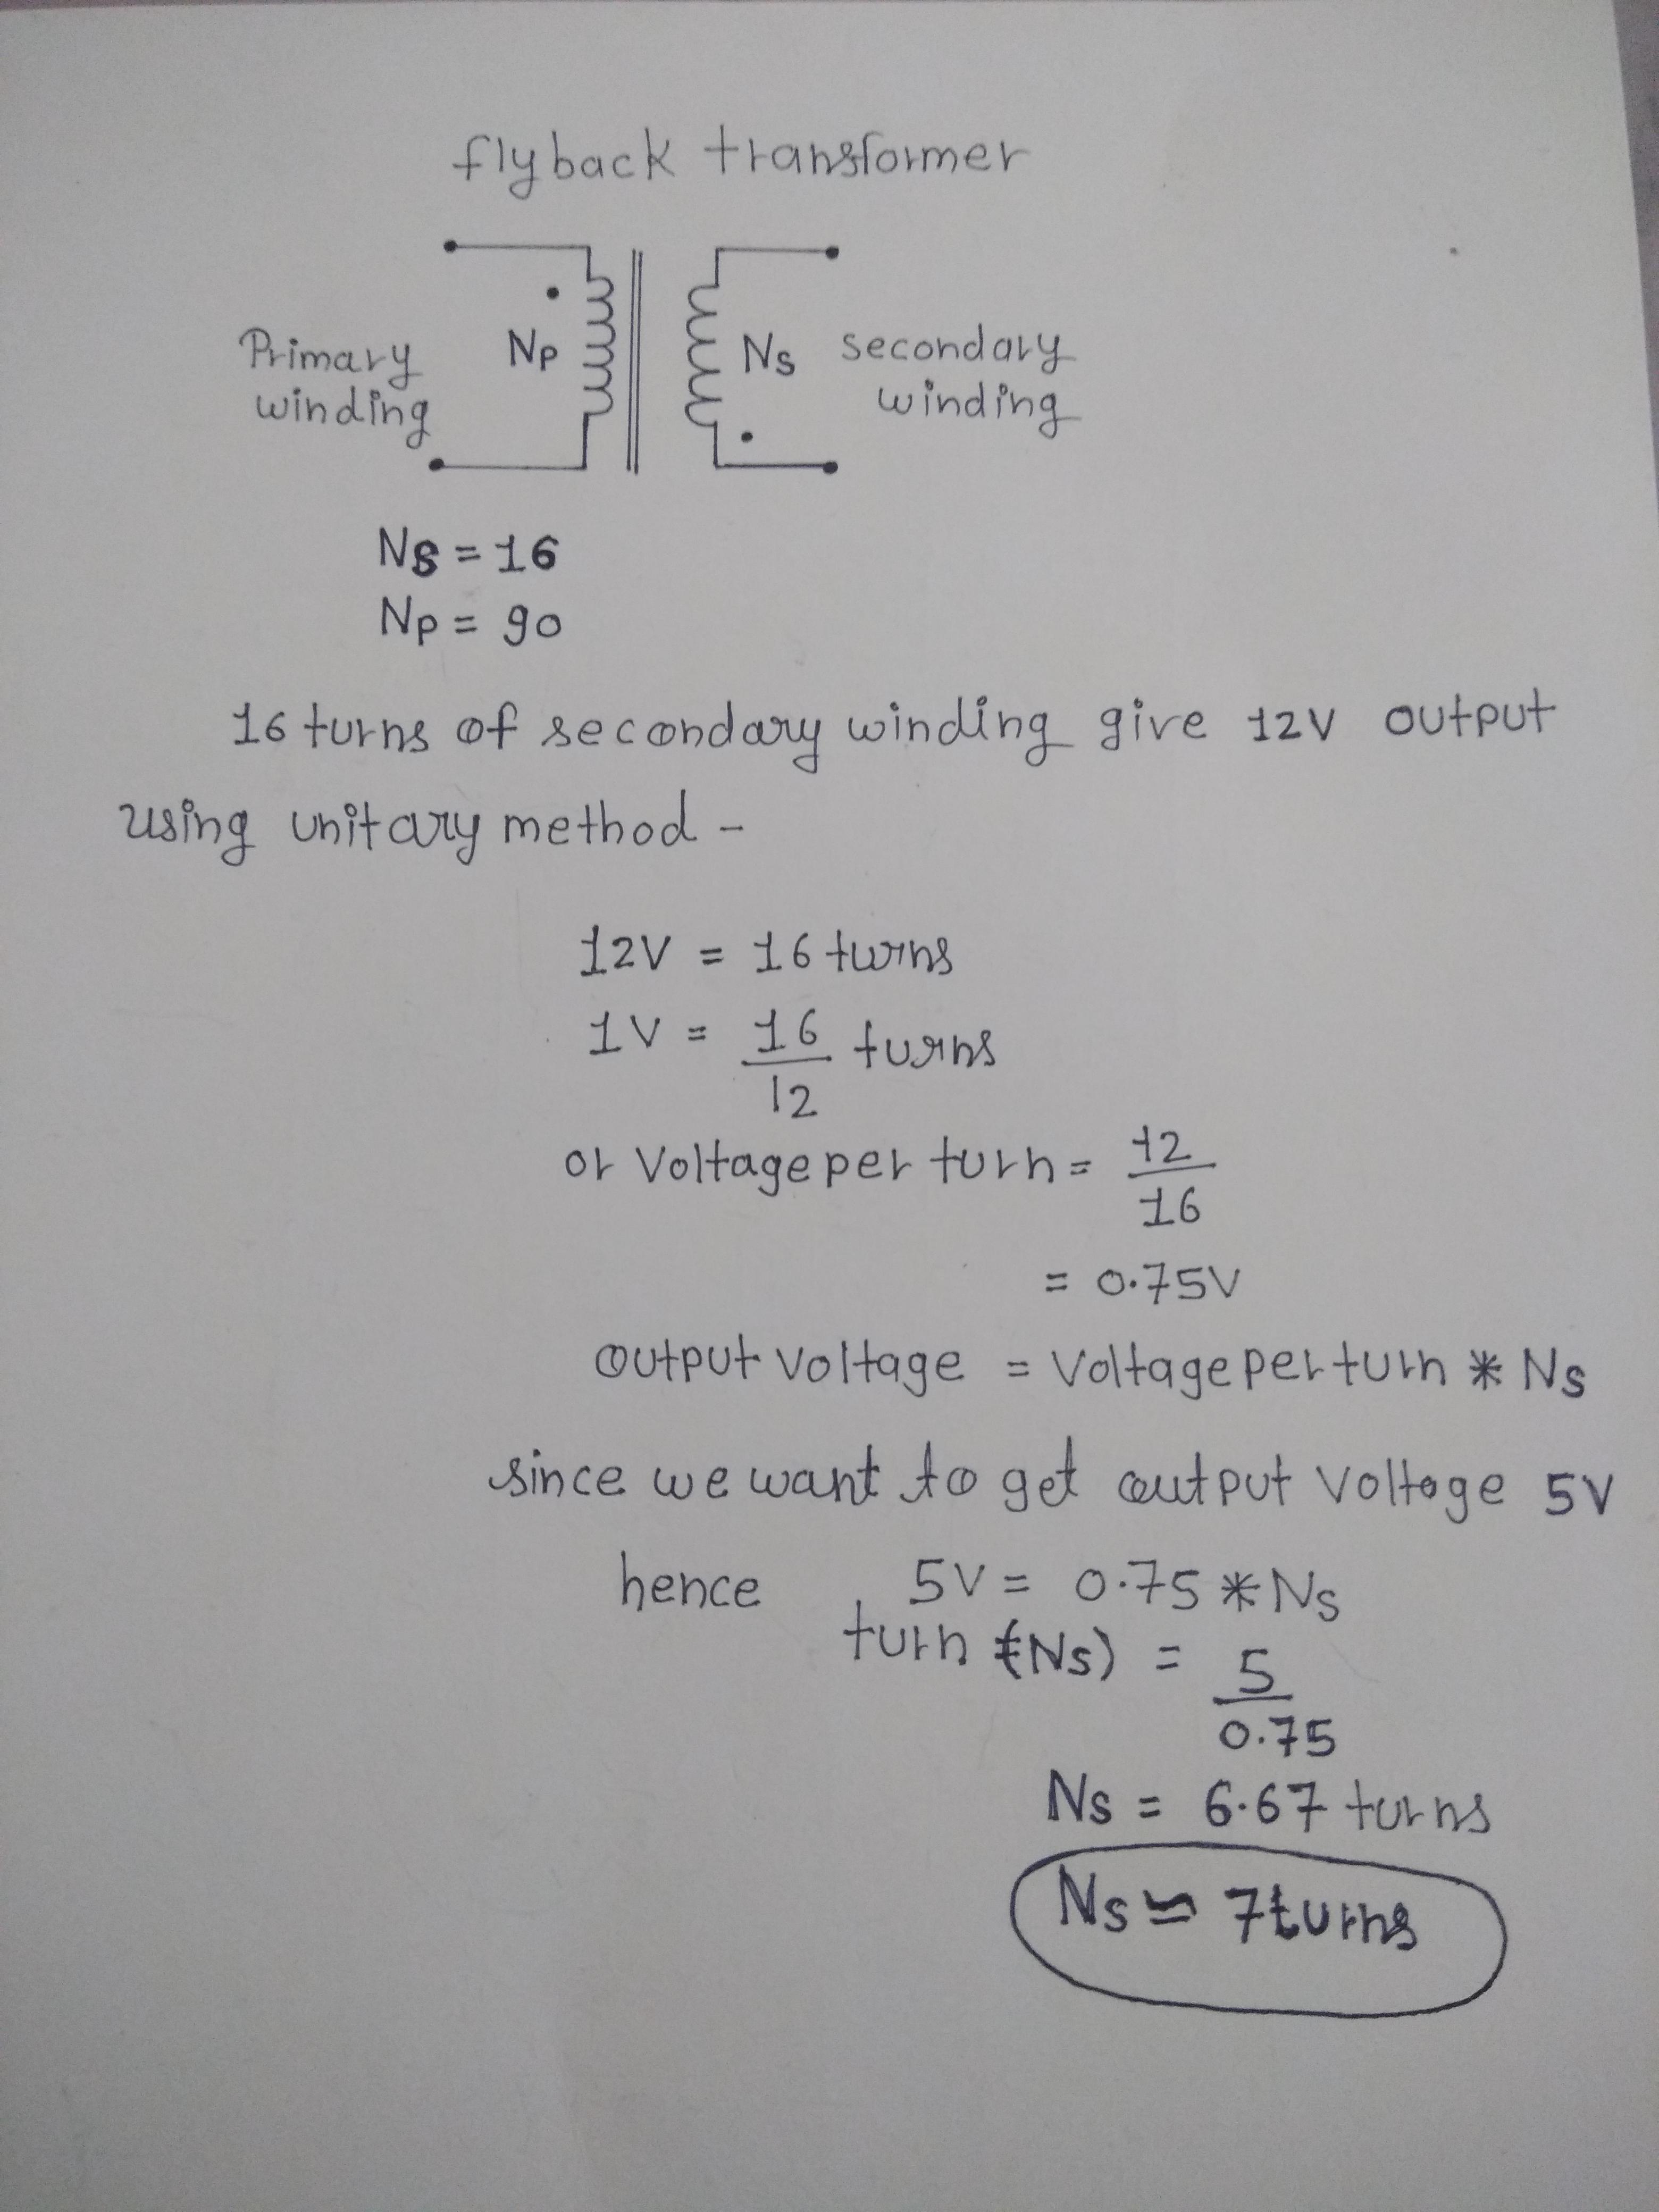 flyback transformer
Primary winding
Np
Ns
secondary winding
Ns = 16
Np = 90
16 turns of secondary winding give 12V output
using unitary method -
12V = 16 turns
1V = 16/12 turns
or Voltage per turn = 12/16
= 0.75V
output voltage = Voltage per turn * Ns
since we want to get output Voltage 5V
hence 5V = 0.75 * Ns
turn (Ns) = 5/0.75
Ns = 6.67 turns
Ns ≃ 7 turns